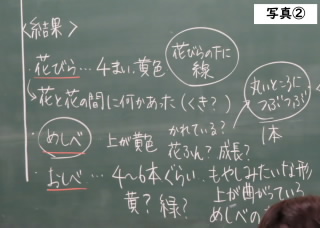 写真②
<結果>
花びら…4まい、黄色
花びらの下に
線
花と花の間に何かあった（くき?）
丸いところに
つぶつぶ
めしべ 上が黄色
かれている?
花ふん? 成長?
1本
おしべ … 4〜6本ぐらい、もやしみたいな形
黄? 緑? 上が曲がっている
めしべの